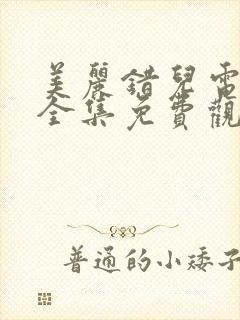 美麗錯兒電
全集免費觀
普通的小矮子